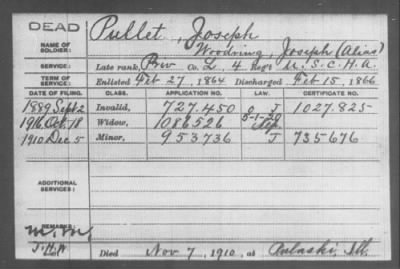 DEAD
Pullet, Joseph
Woodring, Joseph (Alias)
NAME OF SOLDIER:
SERVICE: Late rank, Priv Co. L, 4 Reg't U.S.C.H.A.
TERM OF SERVICE: Enlisted Feb 27, 1864 Discharged Feb 15, 1866
DATE OF FILING. CLASS. APPLICATION NO. LAW. CERTIFICATE NO.
1889 Sept 2 Invalid, 727.450 J 1027.825
1916 Oct. 18 Widow, 1086526 5-1-20
1910 Dec 5 Minor, 953736 J 735676
ADDITIONAL SERVICES:
REMARKS:
Died Nov 7, 1910, at Pulaski, Ill.